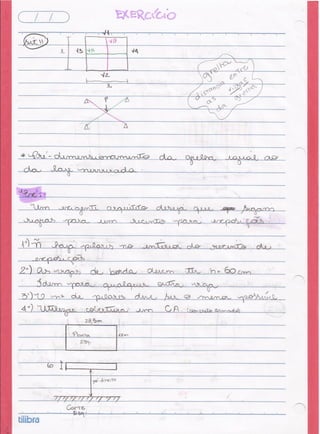 EXERCÍCIO
V1
V5
L
V3
V4
V2
L
P
grelha
distancia entre
as vigas
da grelha
* Pré-dimensionamento da grelha igual ao
da laje nervurada.
Um exigente arquiteto deseja que sejam
vigas para um recinto para exposições.
1º) Ñ haja pilares no interior do recinto de
exposição.
2º) As vigas de borda devem ter h = 60 cm
Idem para qualquer outra viga
3º) O nº de pilares deve ser o menor possível
4º) Utilizar cobertura em CA (concreto armado)
Planta
60
pé-direito
Corte
tilibra